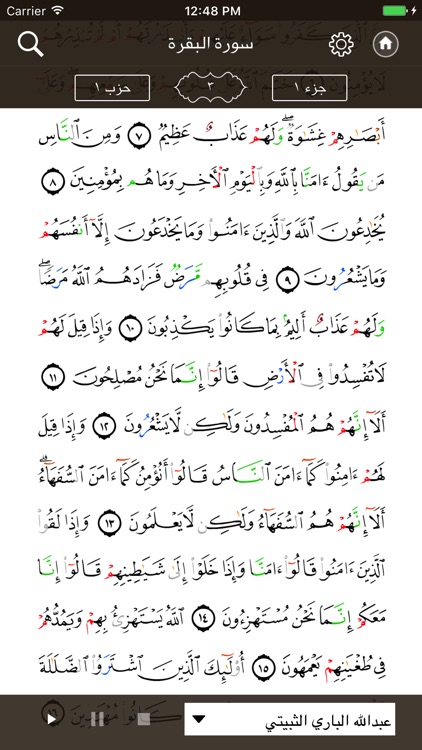 Carrier 12:48 PM
سورة البقرة
حزب ١ ٣ جزء ١
أَبْصَٰرِهِمْ غِشَٰوَةٌۖ وَلَهُمْ عَذَابٌ عَظِيمٌ ٧ وَمِنَ ٱلنَّاسِ
مَن يَقُولُ ءَامَنَّا بِٱللَّهِ وَبِٱلْيَوْمِ ٱلْءَاخِرِ وَمَا هُم بِمُؤْمِنِينَ ٨
يُخَٰدِعُونَ ٱللَّهَ وَٱلَّذِينَ ءَامَنُوا۟ وَمَا يَخْدَعُونَ إِلَّآ أَنفُسَهُمْ
وَمَا يَشْعُرُونَ ٩ فِى قُلُوبِهِم مَّرَضٌ فَزَادَهُمُ ٱللَّهُ مَرَضًاۖ
وَلَهُمْ عَذَابٌ أَلِيمٌۢ بِمَا كَانُوا۟ يَكْذِبُونَ ١٠ وَإِذَا قِيلَ لَهُمْ
لَا تُفْسِدُوا۟ فِى ٱلْأَرْضِ قَالُوٓا۟ إِنَّمَا نَحْنُ مُصْلِحُونَ ١١
أَلَآ إِنَّهُمْ هُمُ ٱلْمُفْسِدُونَ وَلَٰكِن لَّا يَشْعُرُونَ ١٢ وَإِذَا قِيلَ
لَهُمْ ءَامِنُوا۟ كَمَآ ءَامَنَ ٱلنَّاسُ قَالُوٓا۟ أَنُؤْمِنُ كَمَآ ءَامَنَ ٱلسُّفَهَآءُۗ
أَلَآ إِنَّهُمْ هُمُ ٱلسُّفَهَآءُ وَلَٰكِن لَّا يَعْلَمُونَ ١٣ وَإِذَا لَقُوا۟
ٱلَّذِينَ ءَامَنُوا۟ قَالُوٓا۟ ءَامَنَّا وَإِذَا خَلَوْا۟ إِلَىٰ شَيَٰطِينِهِمْ قَالُوٓا۟ إِنَّا
مَعَكُمْ إِنَّمَا نَحْنُ مُسْتَهْزِءُونَ ١٤ ٱللَّهُ يَسْتَهْزِئُ بِهِمْ وَيَمُدُّهُمْ
فِى طُغْيَٰنِهِمْ يَعْمَهُونَ ١٥ أُو۟لَٰٓئِكَ ٱلَّذِينَ ٱشْتَرَوُا۟ ٱلضَّلَٰلَةَ
عبدالله الباري الثبيتي